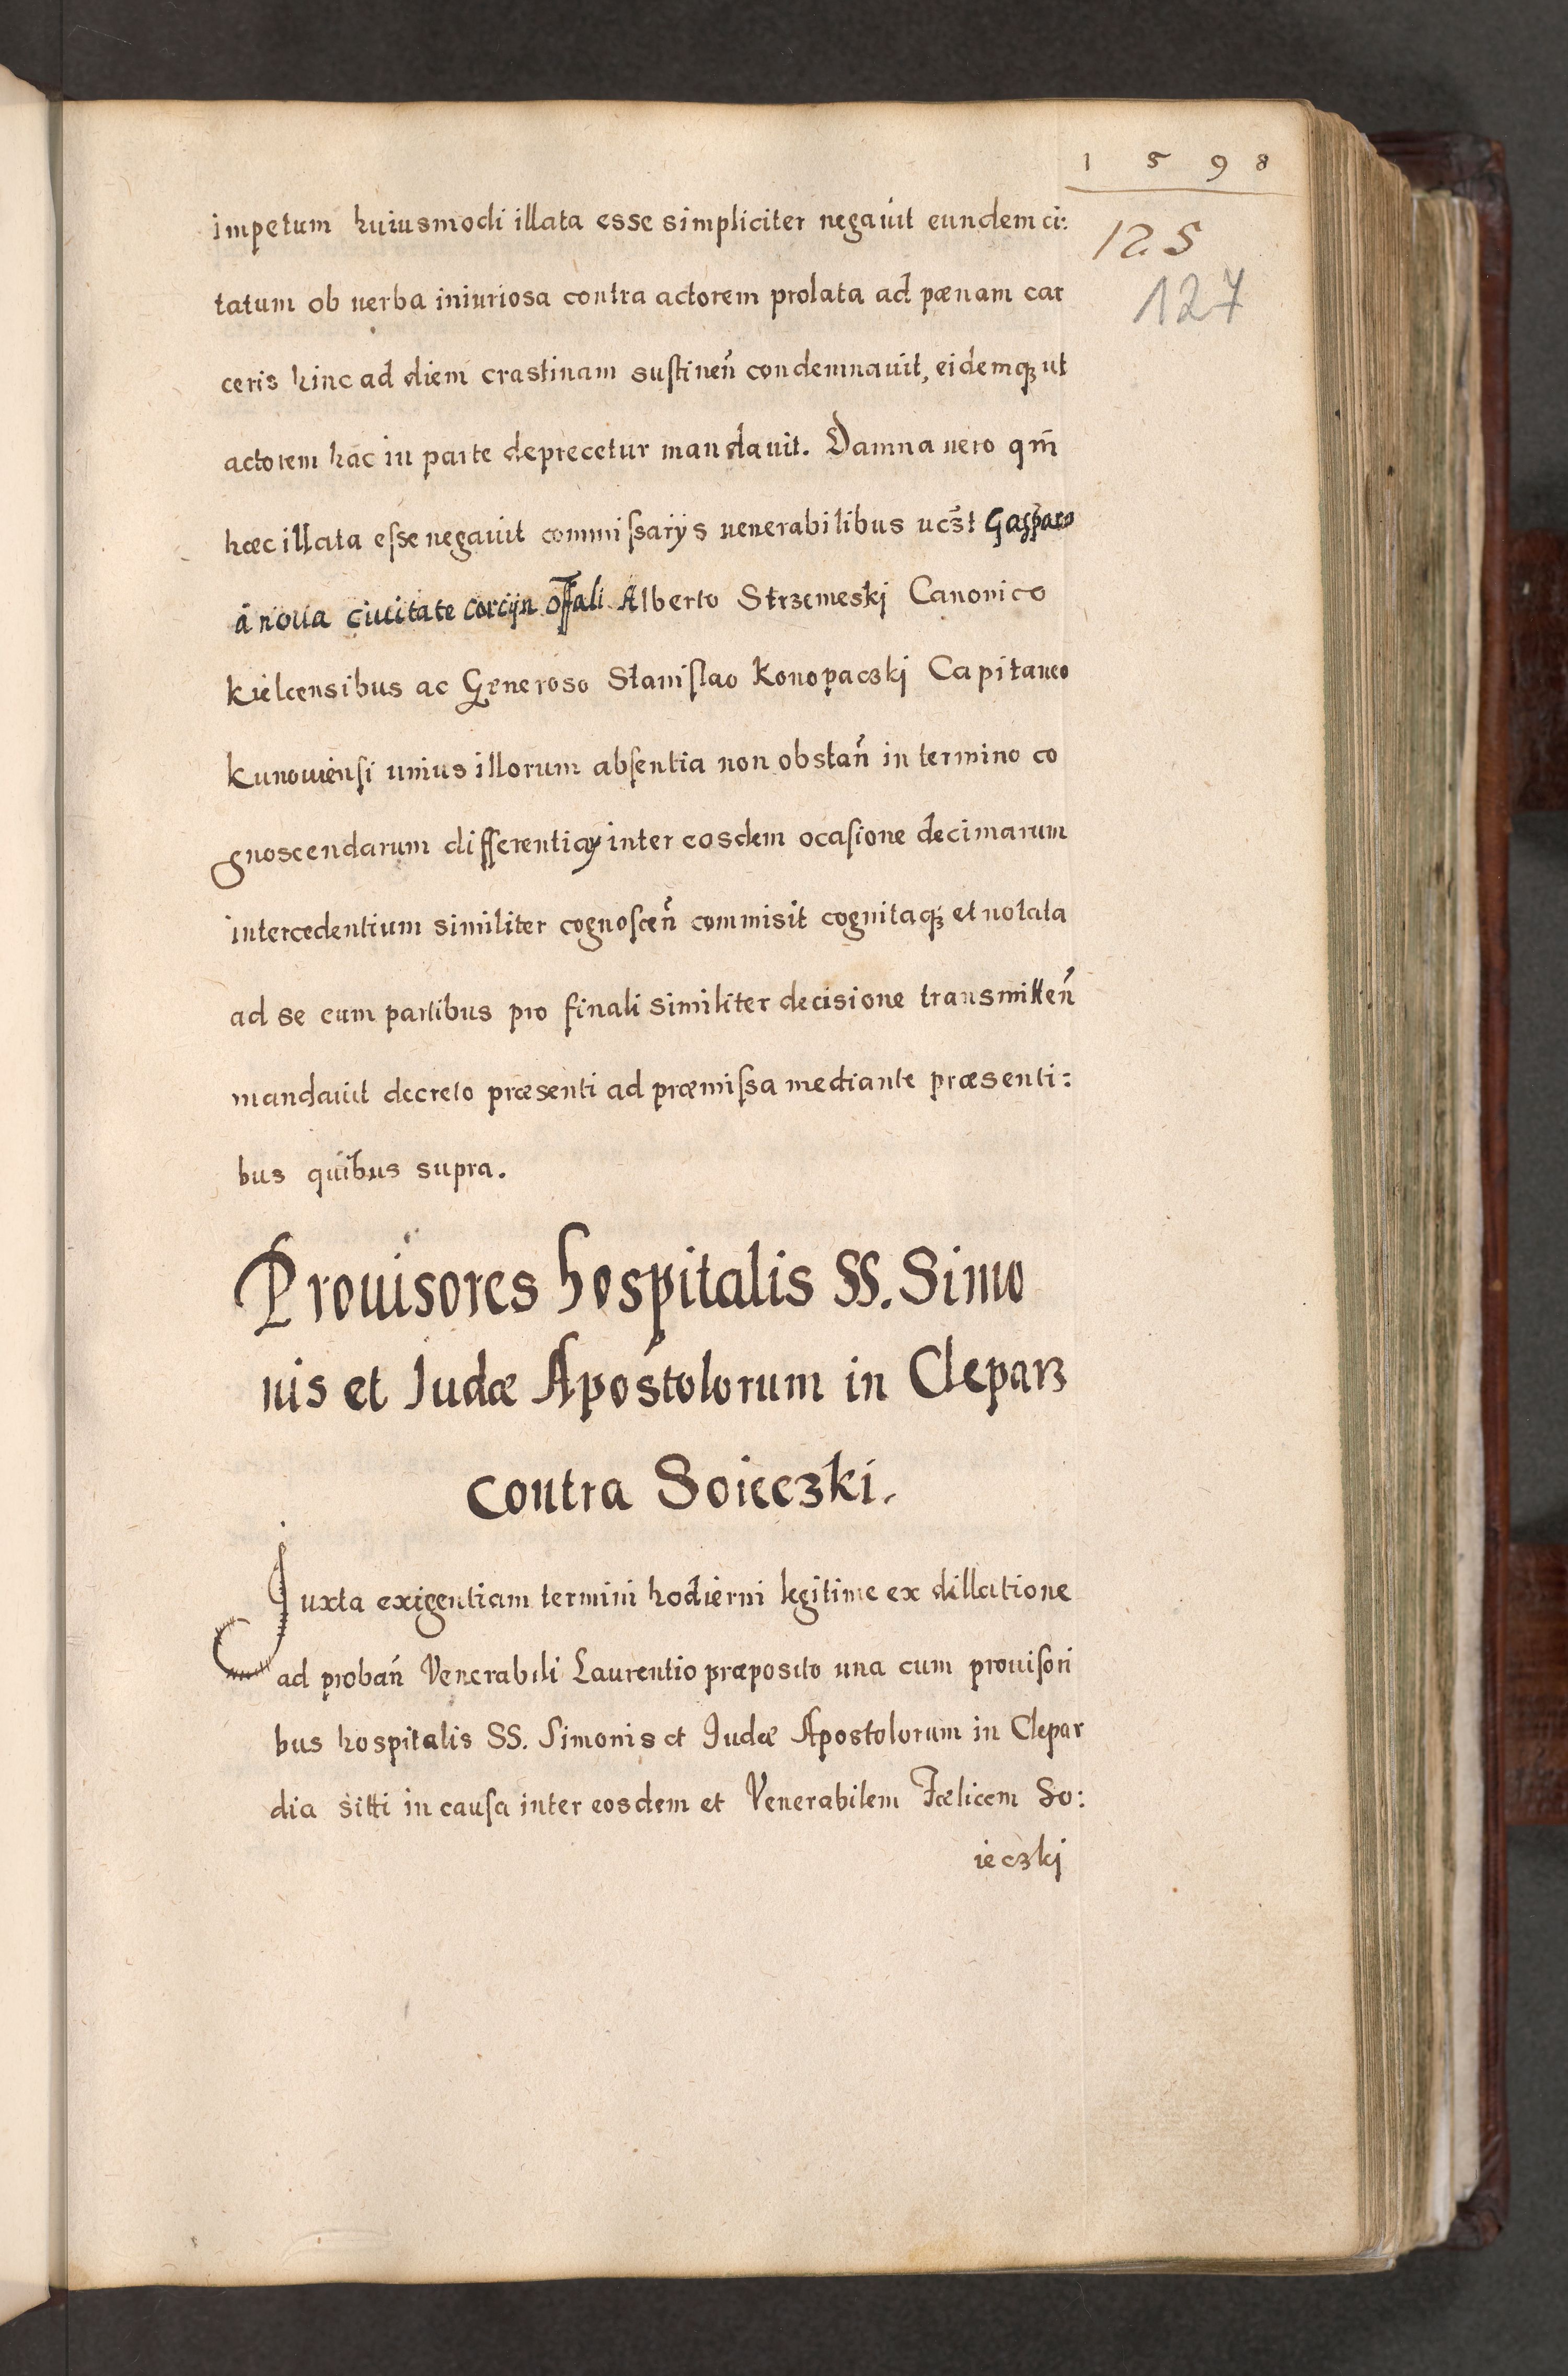 1 5 9 8
125
127
impetum huiusmodi illata esse simpliciter negauit eundem ci:
tatum ob uerba iniuriosa contra actorem prolata ad pænam car
ceris hinc ad diem crastinam sustineñ condemnauit, eidemqꝫ ut
actorem hac in parte deprecetur mandauit. Damna uero qm̃
hæc illata eſse negauit commiſsarijs uenerabilibus uc̃st Gasparo
à noua ciuitate Corcijn offali Alberto Strzemeskj Canonico
Kielcensibus ac Generoso Stanislao Konopaczkj Capitaneo
Kunouiensi unius illorum absentia non obstañ in termino co
gnoscendarum differentiaꝝ inter eosdem ocasione decimarum
intercedentium similiter cognosceñ commisit cognitaqꝫ et notata
ad se cum partibus pro finali similiter decisione transmitteñ
mandauit decreto præsenti ad præmiſsa mediante præsenti:
bus quibus supra.
Prouisores hospitalis SS. Simo
nis et Iudæ Apostolorum in Cleparz
contra Soieczki.
Iuxta exigentiam termini hodierni legitime ex dillatione
ad probañ Venerabili Laurentio præposito una cum prouisori
bus hospitalis SS. Simonis et Iudæ Apostolorum in Clepar
dia sitti in causa inter eosdem et Venerabilem Fælicem So:
ieczkj